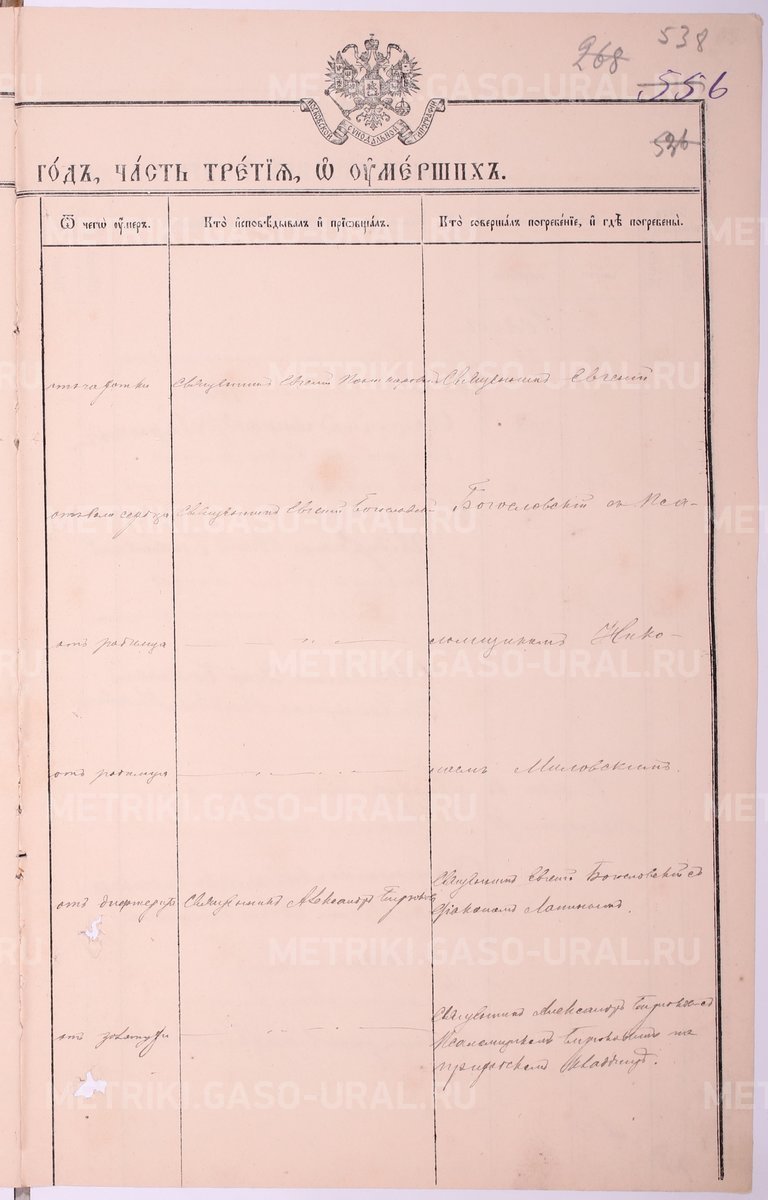 268
538
556
536
МОСКОВСКОЙ СѴНОДАЛЬНОЙ ТИПОГРАФІИ
ГО́ДЪ, ЧА́СТЬ ТРЕ́ТІѦ, Ѡ҆ ОУ҆МЕ́РШИХЪ.
Ѿ чегѡ̀ оу҆́меръ.
Кто̀ и҆сповѣ́дывалъ и҆ прїѡбща́лъ.
Кто̀ соверша́лъ погребе́нїе, и҆ гдѣ̀ погребены̀.
отъ чахотки
Священникъ Евгеній
Священникъ Евгеній
Священникъ Евгеній Богословскій
Богословскій съ Пса-
отъ родимца
ломщикомъ Нико-
отъ родимца
лаемъ Миловскимъ.
отъ дифтерита
Священникъ Александръ
Священникъ Евгеній Богословскій съ
Діакономъ
отъ
Священникъ Александръ съ
Псаломщикомъ на
приходскомъ кладбищѣ.
METRIKI.GASO-URAL.RU